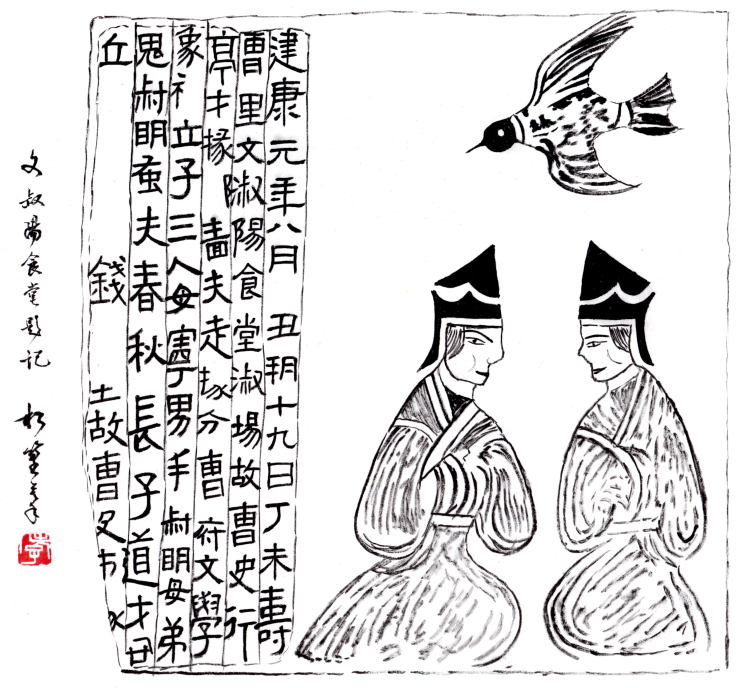 建康元年八月 丑朔十九日丁未壽
曹里文淑陽食堂淑場故曹史行
亭才掾 嗇夫走掾分曹 府文學
掾 立子三人母寧男弟叔明母弟
鬼叔明蚤夫春秋長子道才
丘 錢 土故曹史市
文叔陽食堂影記